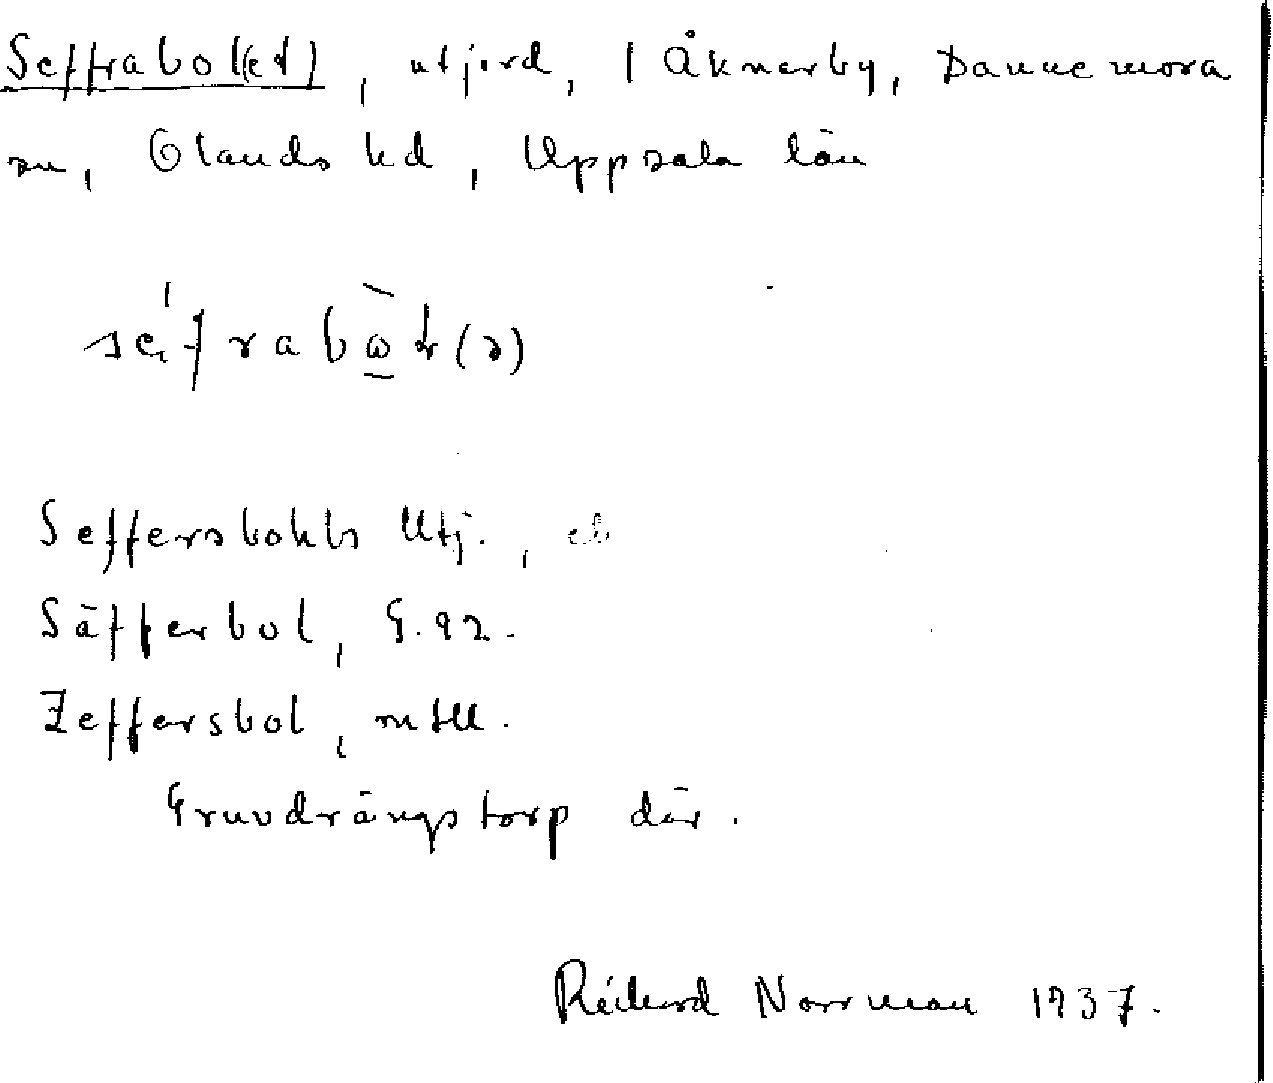 Seffrabol(et), utjord, i Åknarby, Dannemora
sn, Olands hd, Uppsala län
Seffersbohls Utj., eb
Säfferbol, G.92.
Zeffersbol, mtll.
Gruvdrängstorp där.
Richard Norrman 1937.